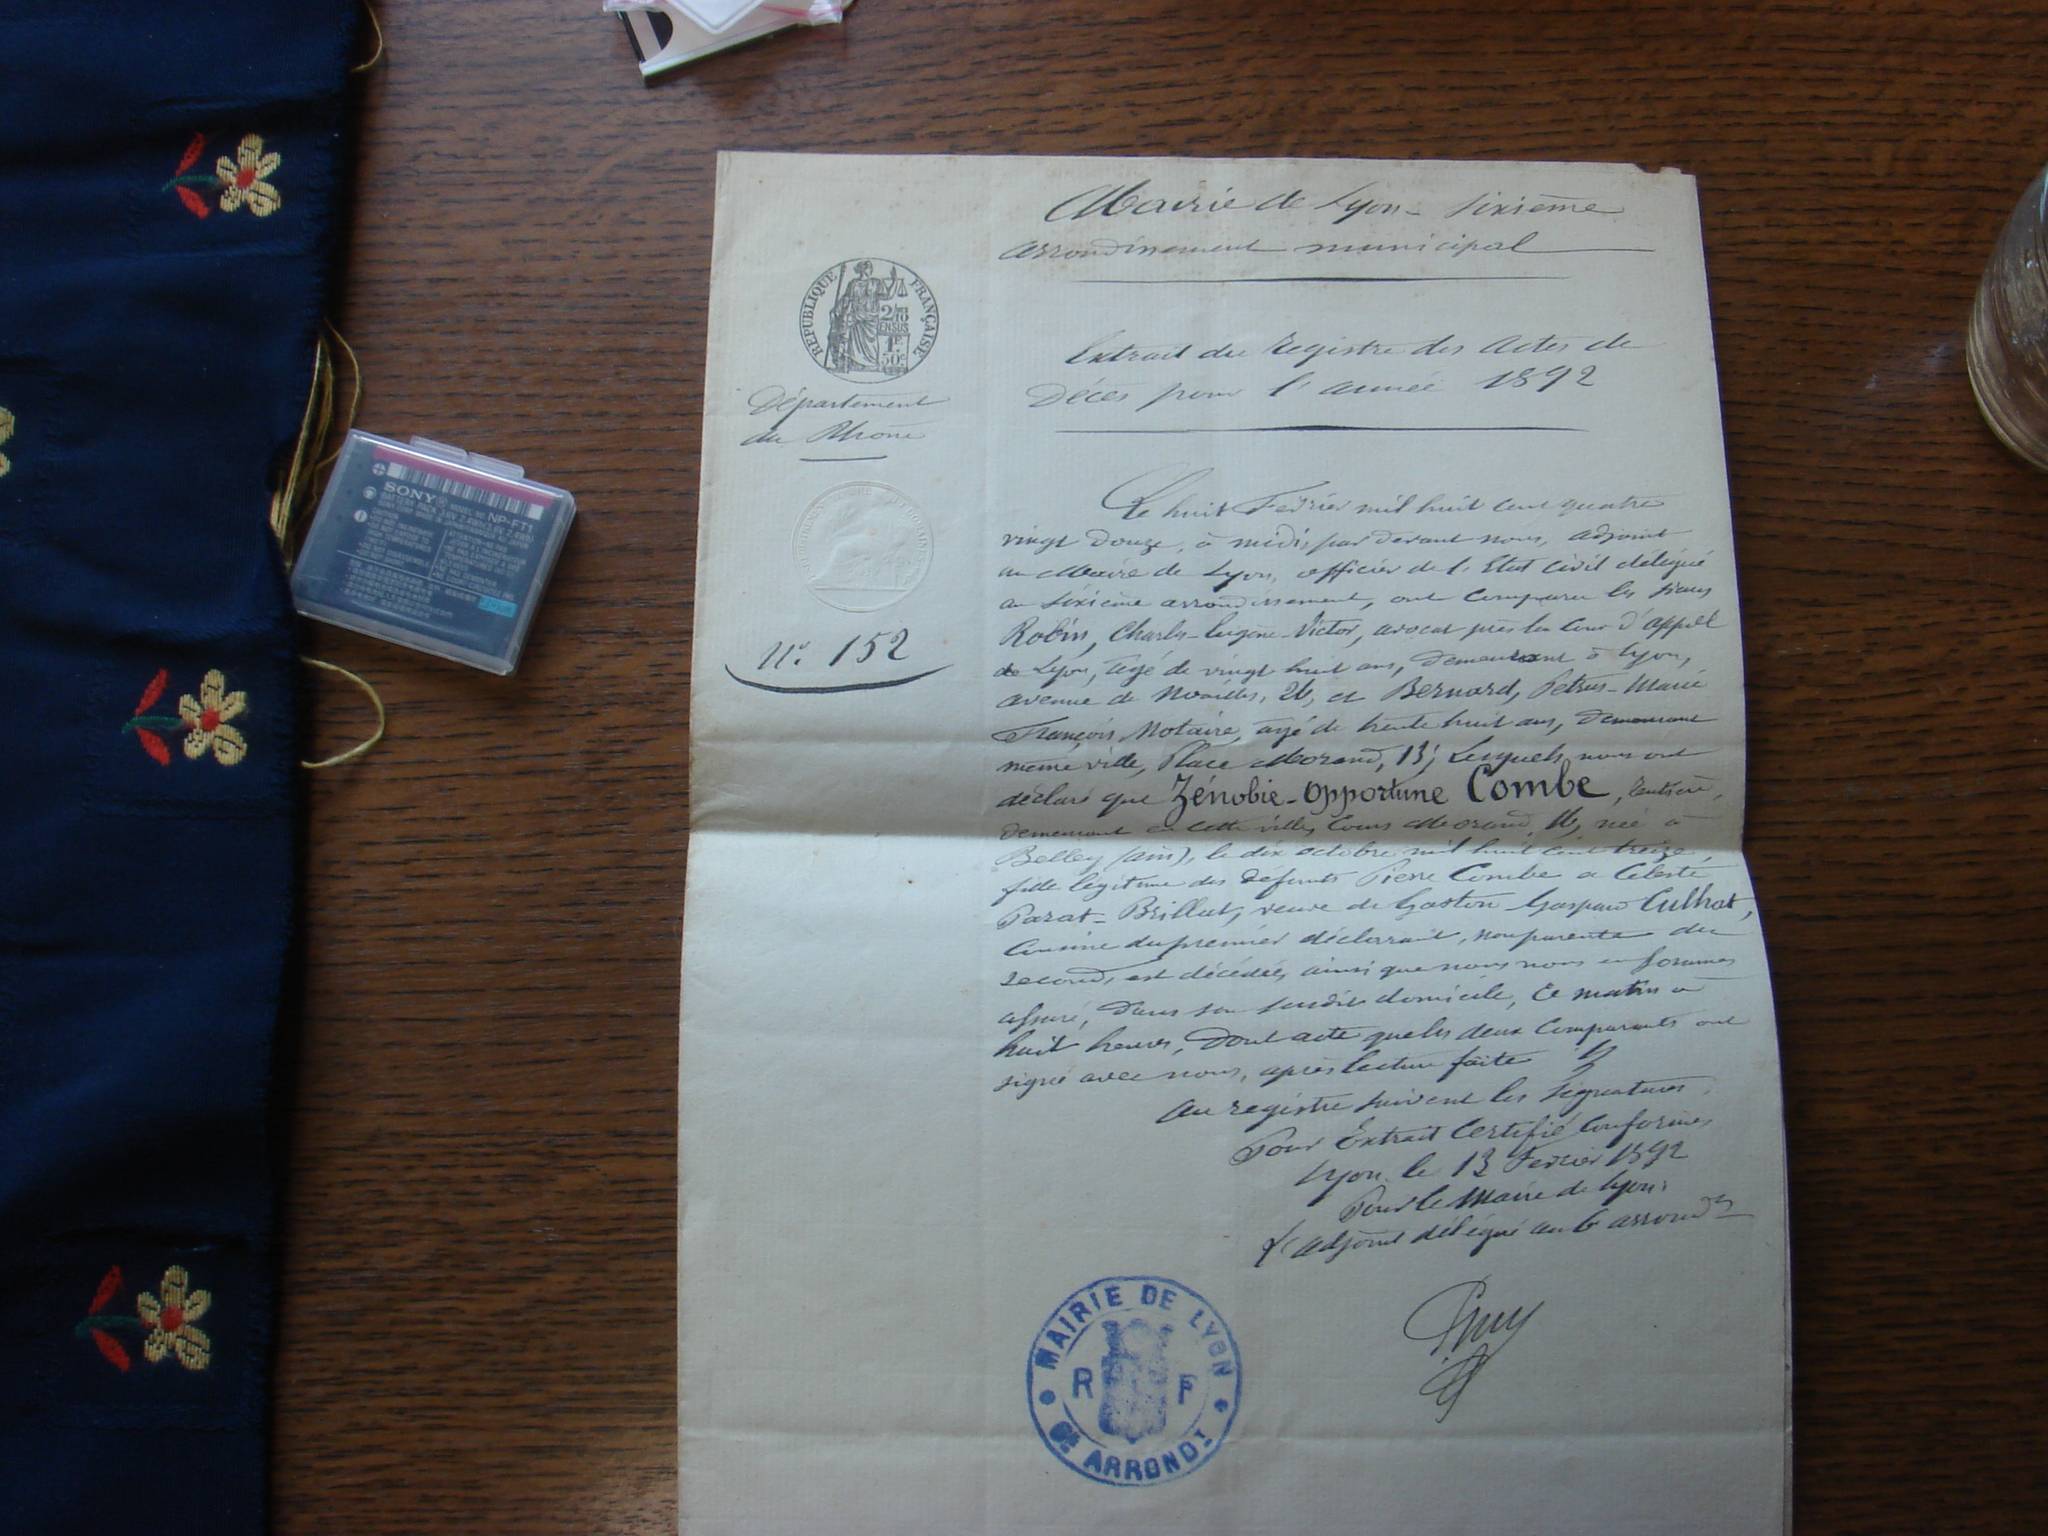 Mairie de Lyon - Sixième
arrondissement municipal
RÉPUBLIQUE FRANÇAISE
2/10
EN SUS
1F.
50c
Extrait du registre des actes de
Décès pour l'année 1892
Département
du Rhône
N° 152
Le huit Fevrier mil huit cent quatre
vingt Douze, à midi, par devant nous, adjoint
au Maire de Lyon, officier de l'Etat civil délégué
au sixième arrondissement, ont comparu les sieurs
Robin, Charles-Eugène-Victor, avocat près la Cour d'appel
de Lyon, âgé de vingt huit ans, demeurant à Lyon,
avenue de Noailles, 26, et Bernard, Petrus-Marie
François, Notaire, âgé de trente huit ans, demeurant
même ville, Place Morand, 13; Lesquels nous ont
déclaré que Zénobie-Opportune Combe, rentière,
demeurant en cette ville, Cours Morand, née à
Belley (ain), le dix octobre mil huit cent treize,
fille légitime des défunts Pierre Combe et Céleste
Parat-Brillat, veuve de Gaston Gaspard Culhat,
Cousine du premier déclarant, non parente du
second, est décédée, ainsi que nous nous en sommes
assuré, dans son susdit domicile, ce matin à
huit heures, Dont acte que les deux comparants ont
signé avec nous, après lecture faite
au registre suivent les signatures.
Pour Extrait Certifié Conforme
Lyon le 13 Fevrier 1892
Pour le Maire de Lyon,
L'adjoint délégué au 6 arrondt
MAIRIE DE LYON
R F
6e ARRONDT
SONY
BATTERY PACK
MODEL NO. NP-FT1